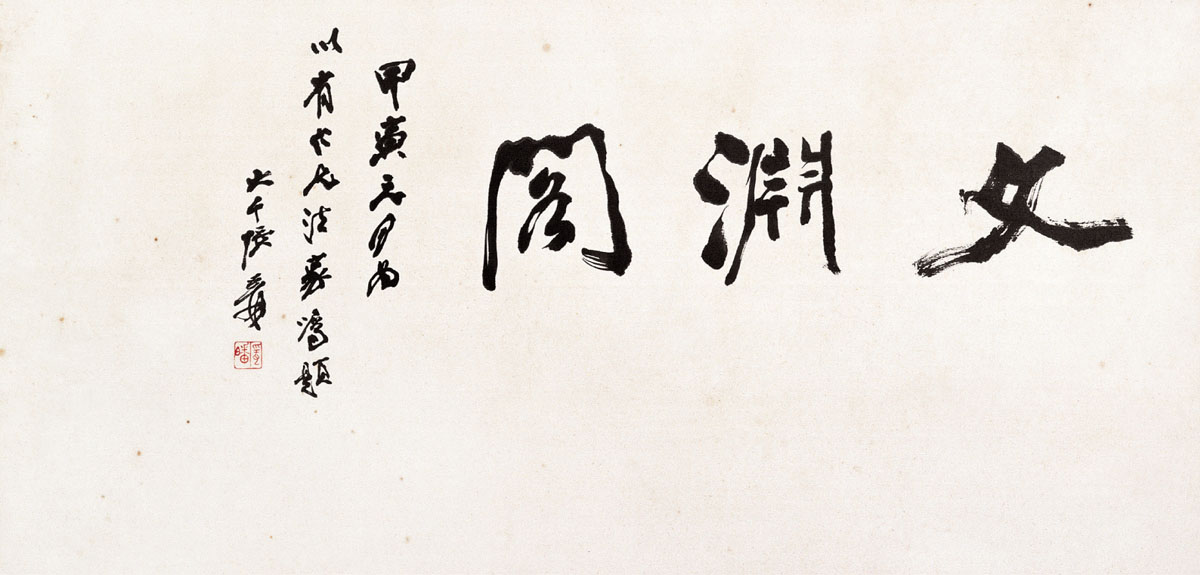 文淵閣
甲寅 月為
以有 兄法家 題
大千張爰